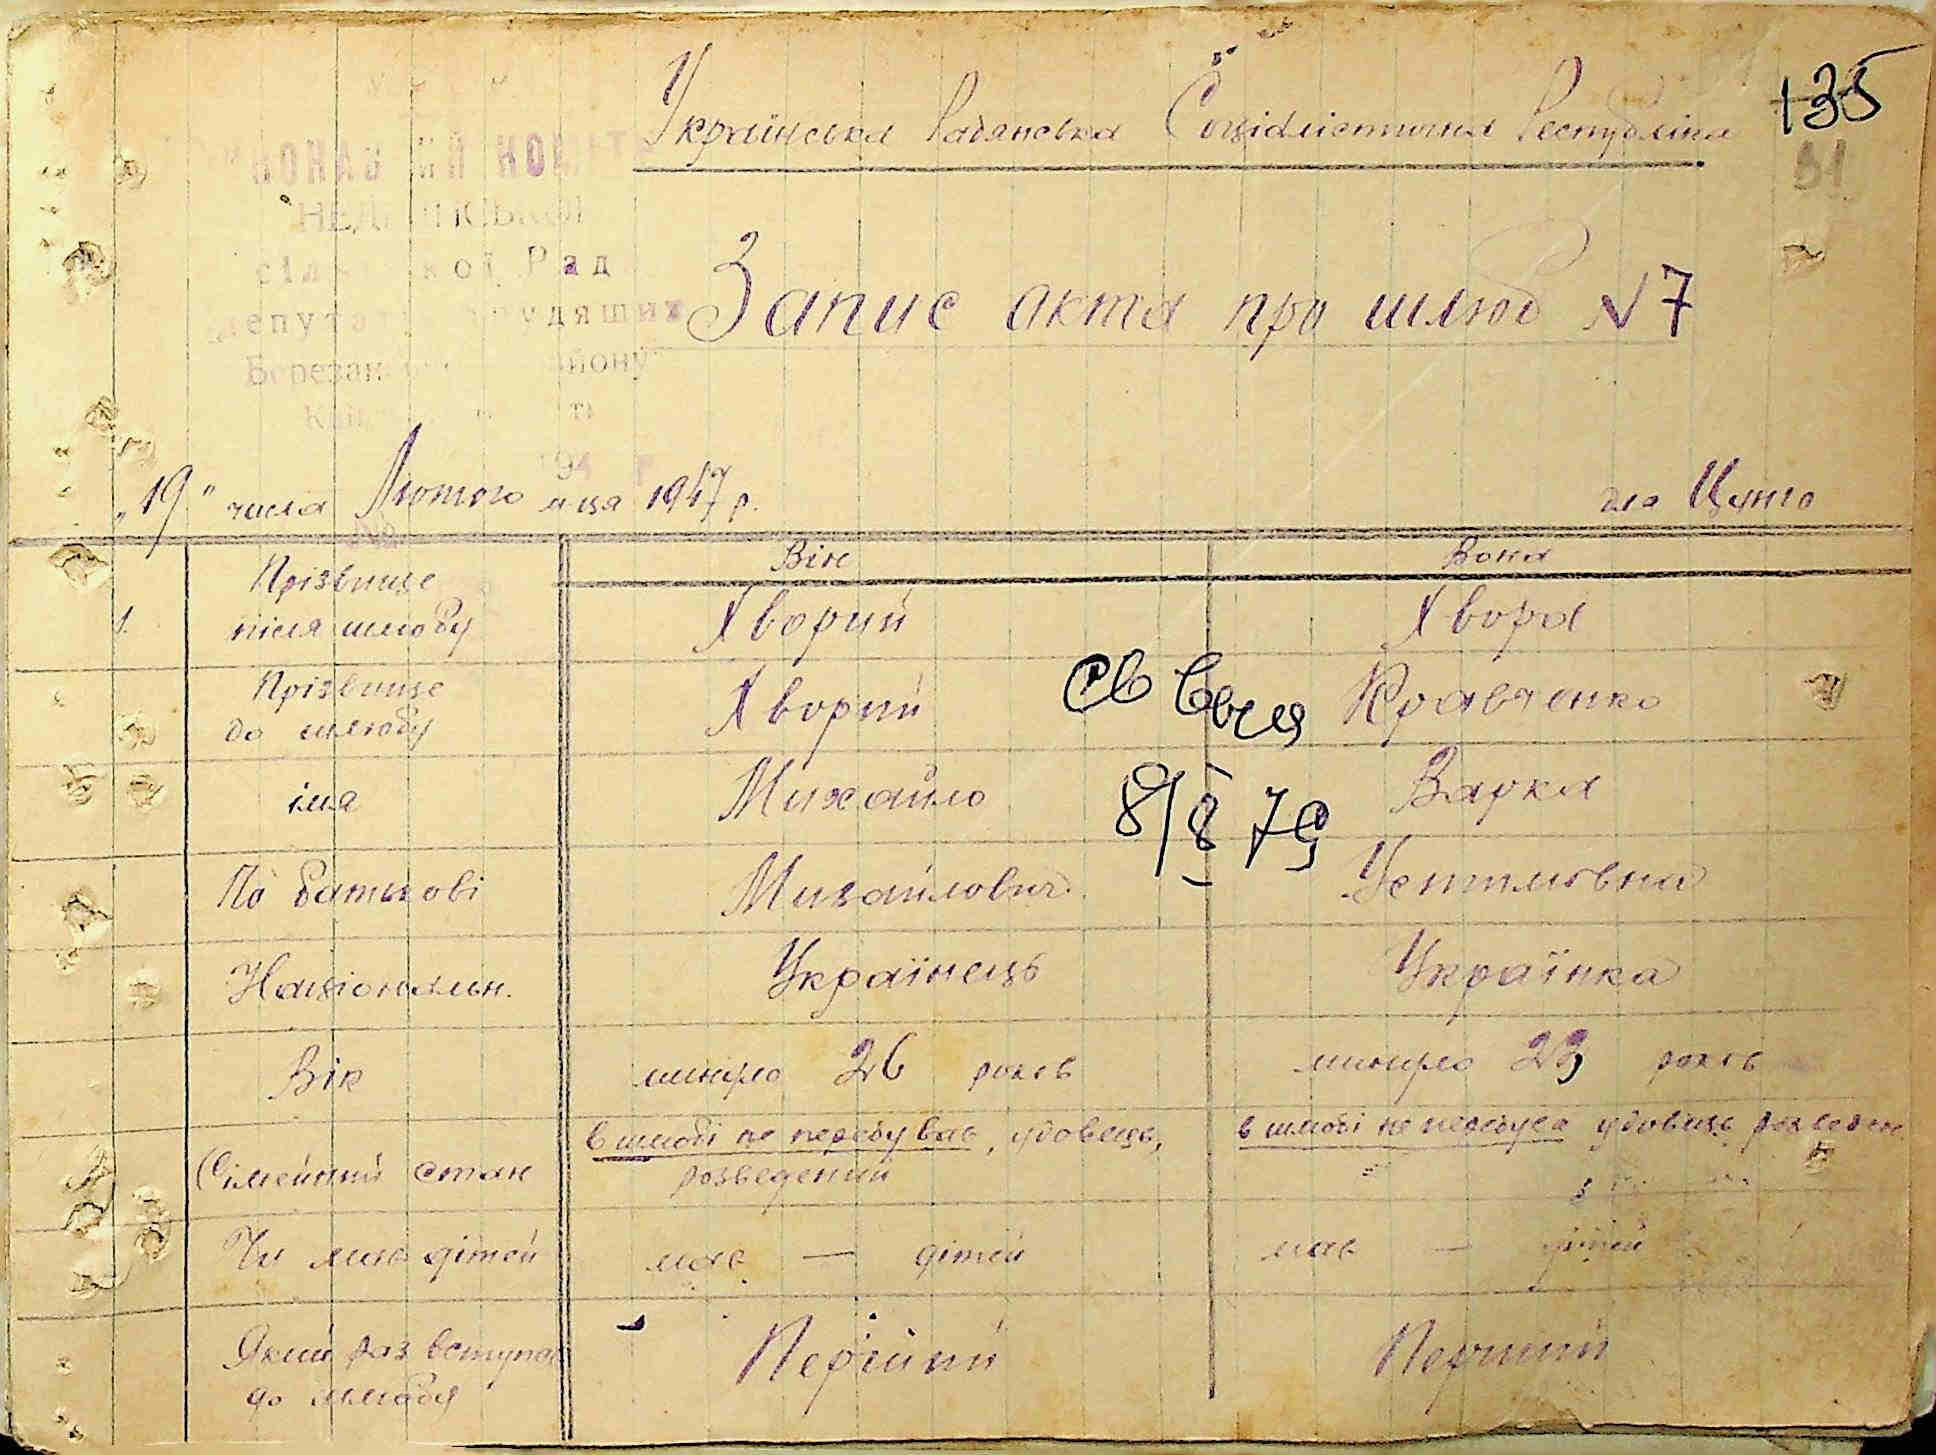 Українська Радянська Соціалістична Республіка
135
91
сіл кої Рад
епута трудящих
Березан йону
Запис акта про шлюб N7
"19" числа Лютого м-ця 1947 р.
для
Він Вона
1. Прізвище після шлюбу Хворий Хвора
Прізвище до шлюбу Хворий Кравченко
св
8/8 79
імя Михайло Варка
По батькові Михайлович Устимовна
Національн. Українець Українка
Вік минуло 26 років минуло 23 років
Сімейний стан в шлюбі не перебував, удовець, розведений в шлюбі не перебува удовець розведен
Чи мав дітей мав — дітей мав — дітей
Який раз вступає до шлюбу Перший Перший